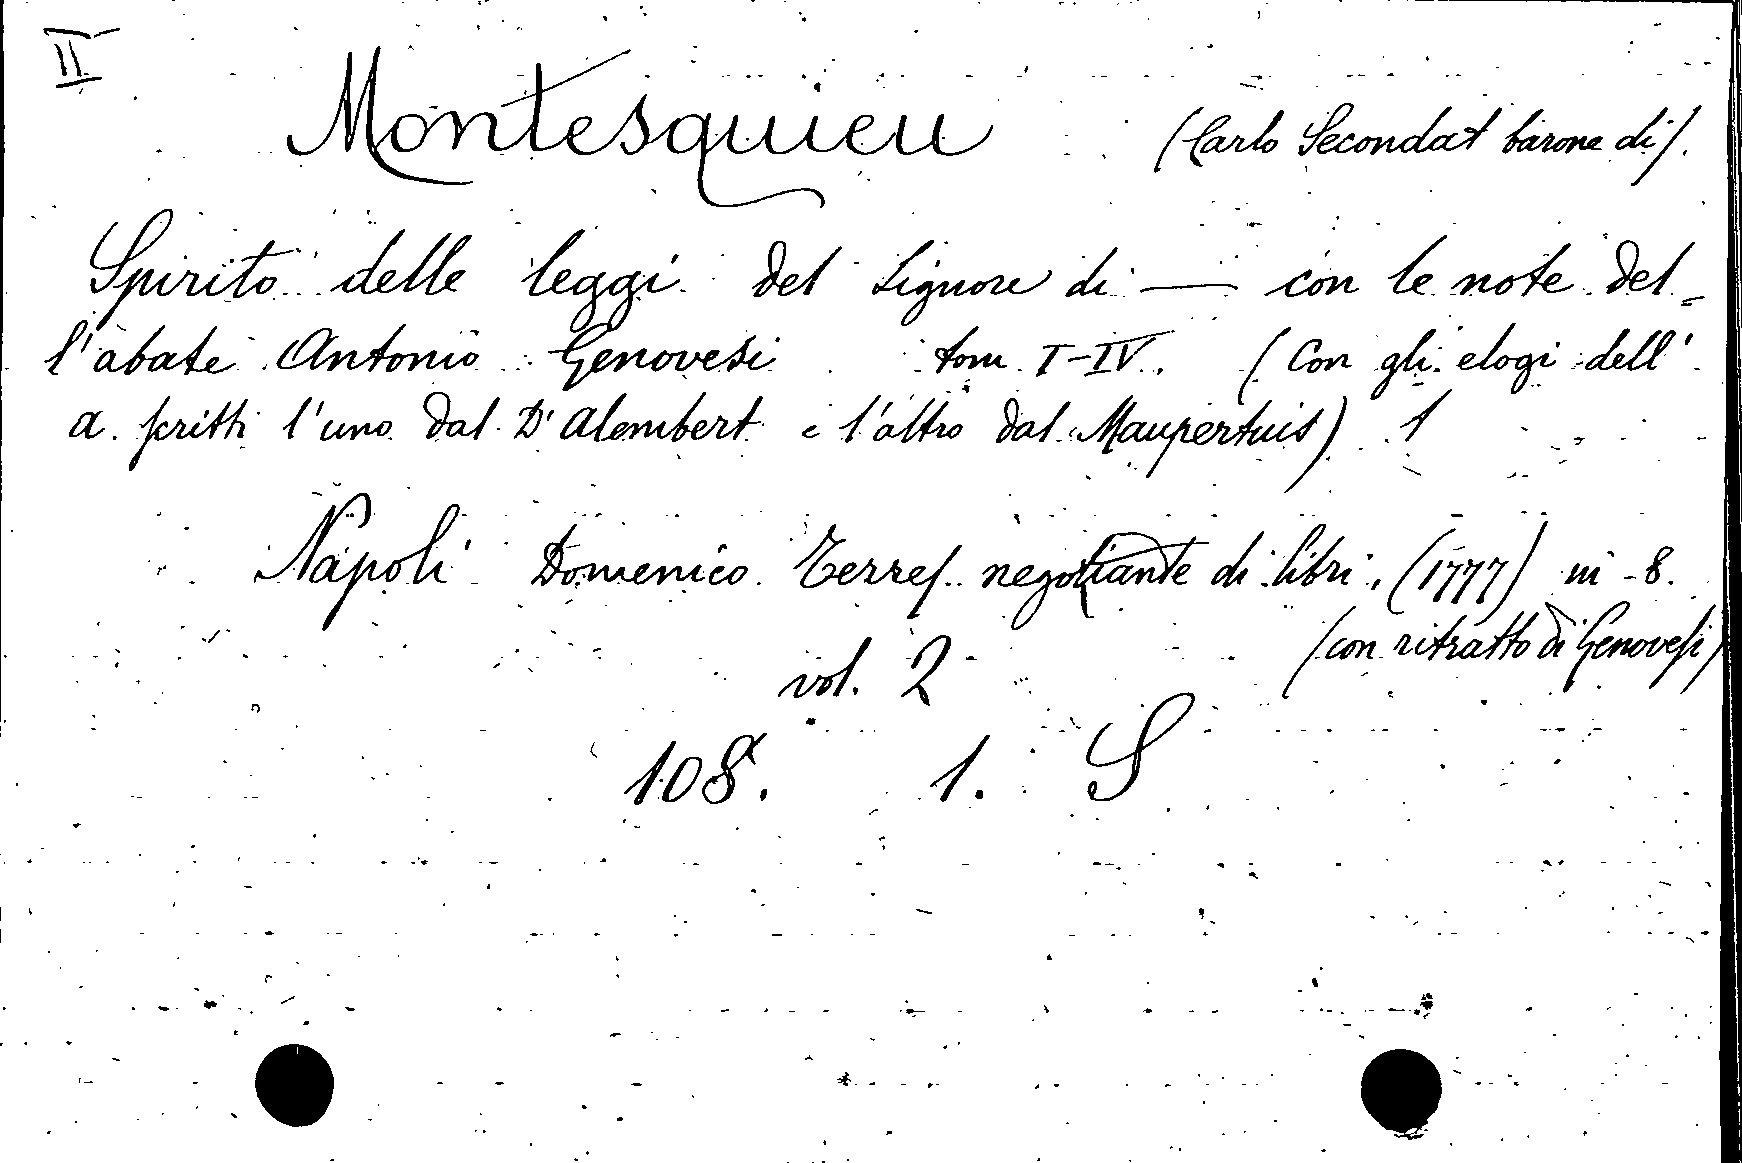 II
Montesquieu (Carlo Secondat barone di).
Spirito delle leggi del Signore di — con le note del=
l'abate Antonio Genovesi tom I-IV. (Con gli elogi dell'
a. scritti l'uno dal D'Alembert e l'altro dal Maupertuis)
Napoli Domenico Terres negotiante di libri. (1777) in-8.
(con ritratto di Genovesi)
vol. 2
108. 1. S